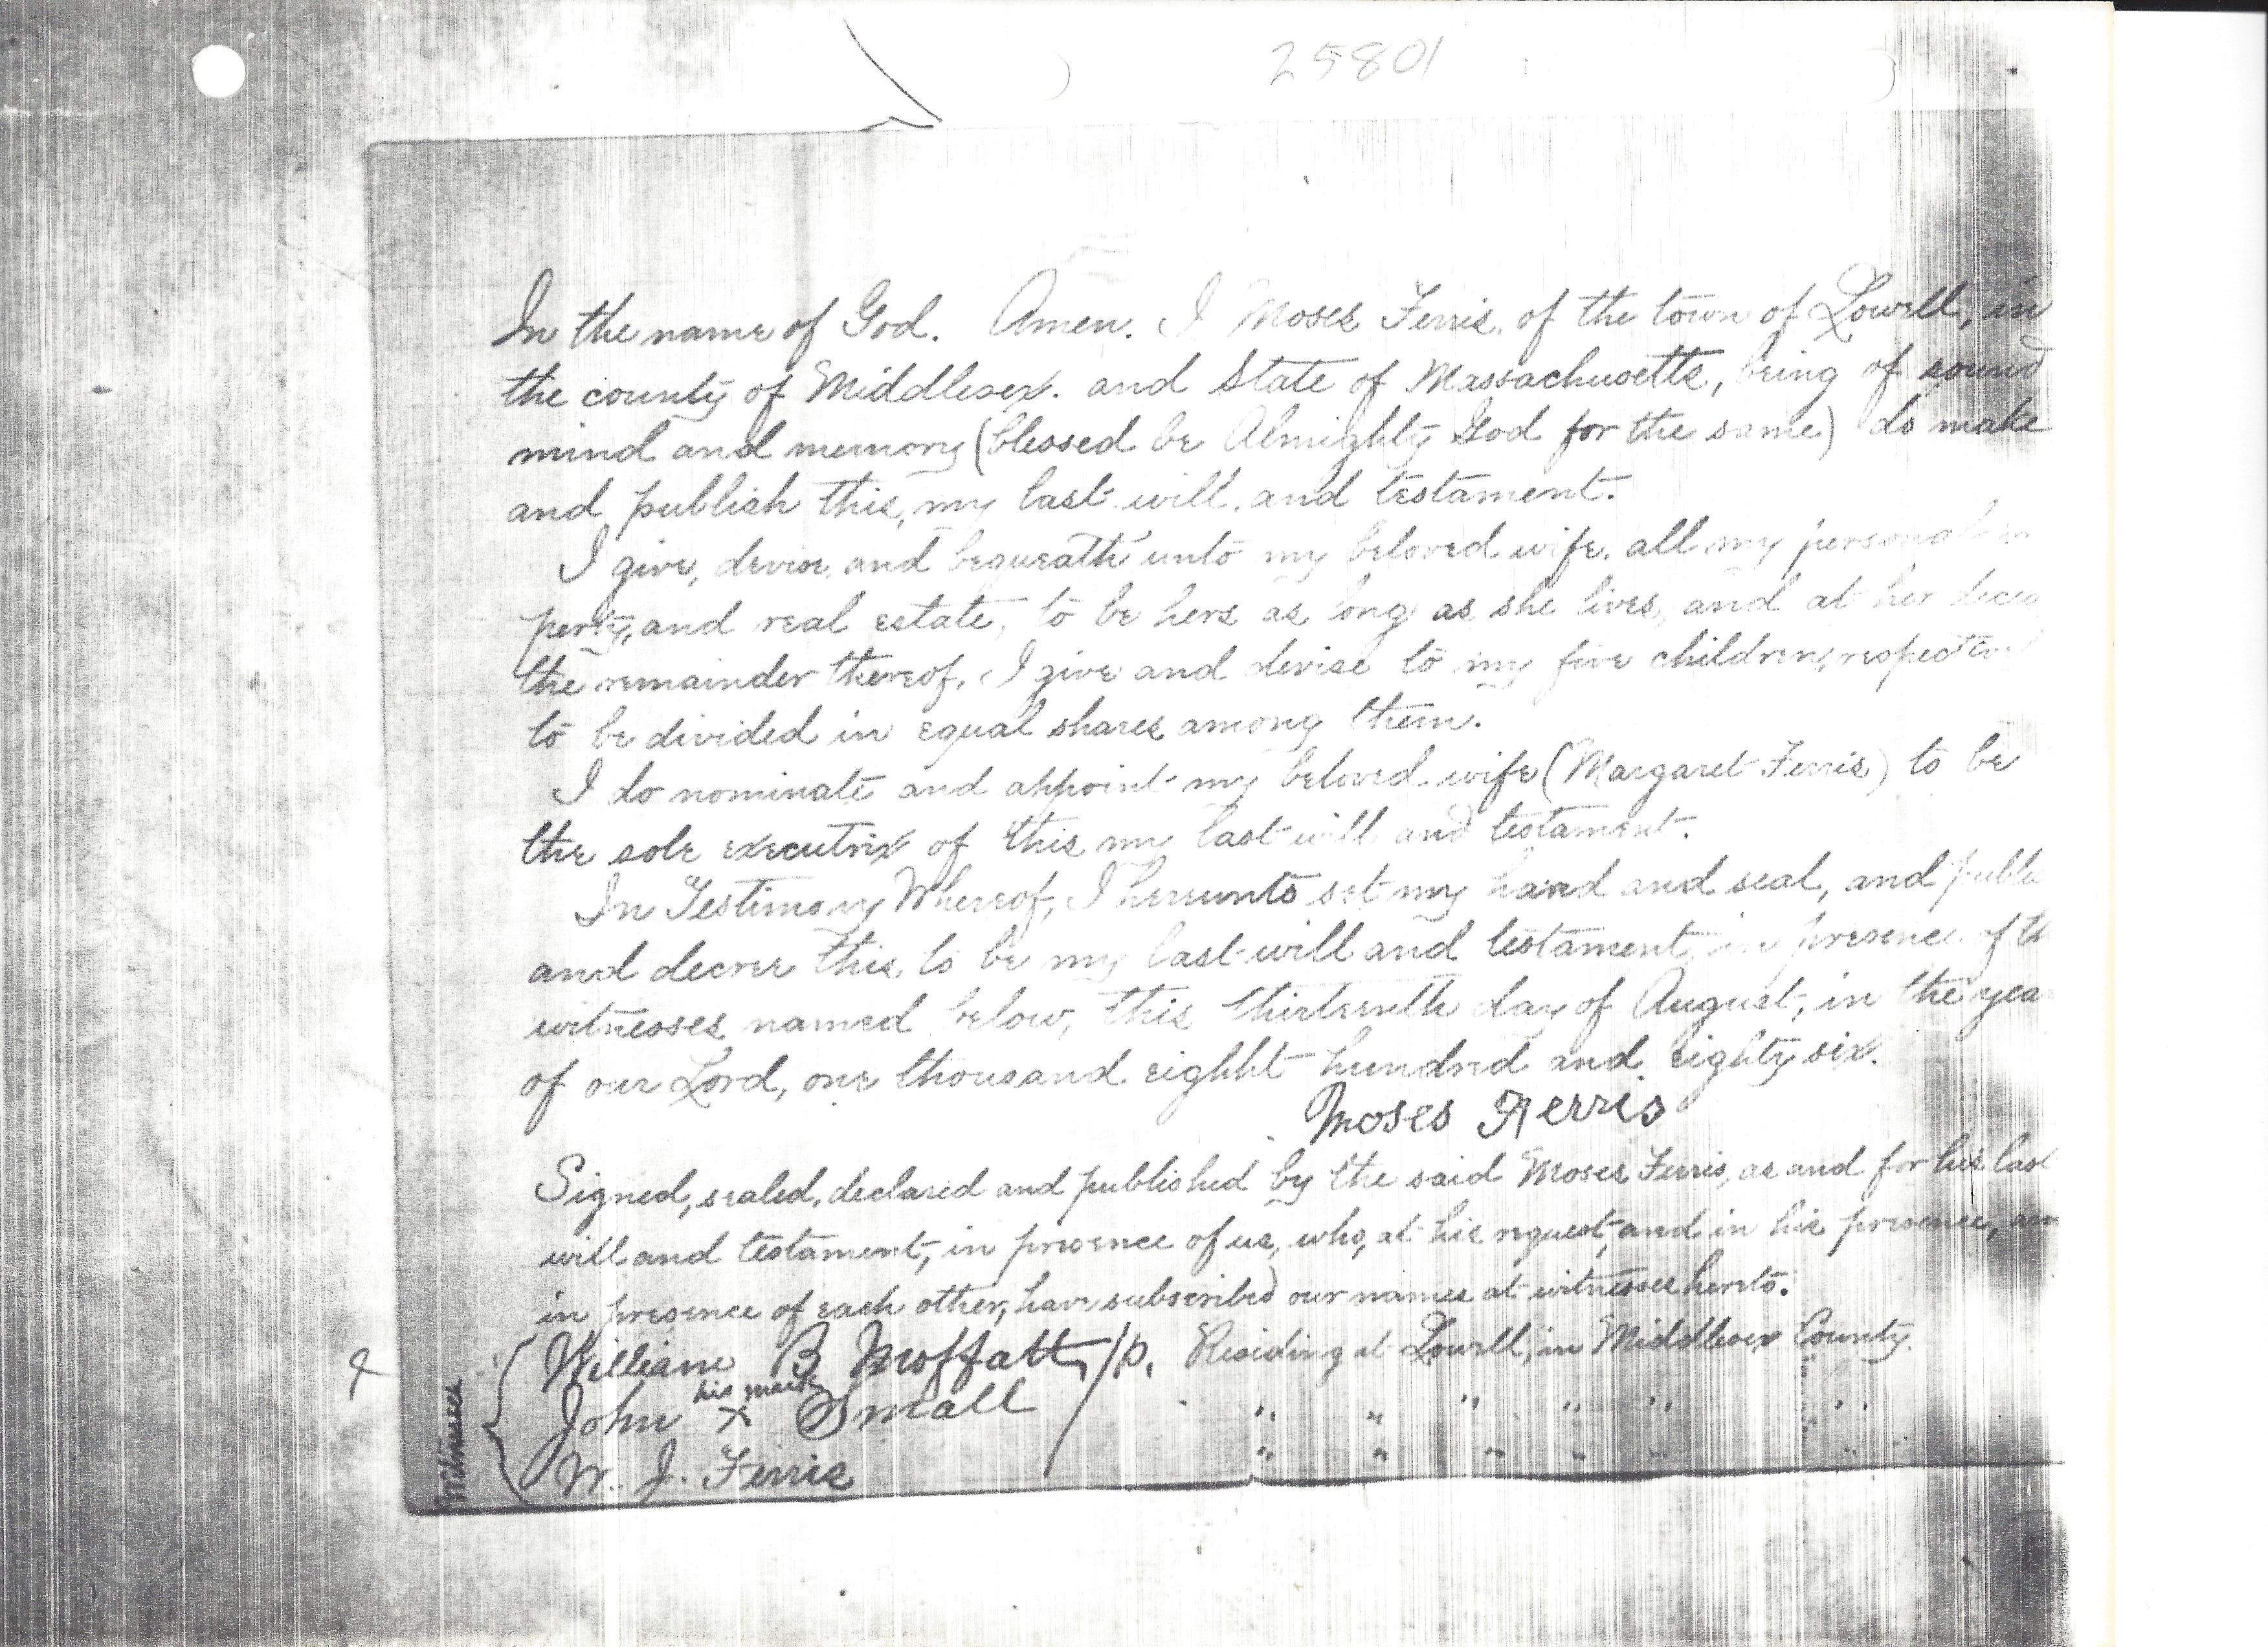 25801
In the name of God. Amen. I Moses Ferris, of the town of Lowell, in
the county of Middlesex. and State of Massachusetts, being of sound
mind and memory (blessed be Almighty God for the same) do make
and publish this, my last will, and testament.
I give, devise, and bequeath unto my beloved wife, all my personal
perty, and real estate, to be hers as long as she lives, and at her decea
the remainder thereof, I give and devise to my five children, respectiv
to be divided in equal shares among them.
I do nominate and appoint my beloved wife (Margaret Ferris) to be
the sole executrix of this my last will and testament.
In Testimony Whereof, I hereunto set my hand and seal, and publi
and decree this, to be my last will and testament, in presence of th
witnesses named below, this thirteenth day of August, in the yea
of our Lord, one thousand eighht hundred and eighty six.
Moses Ferris
Signed, sealed, declared and published by the said Moses Ferris, as and for his last
will and testament, in presence of us, who, at his request, and in his presence, an
in presence of each other, have subscribed our names at witnesses hereto.
Witnesses
William B Moffatt, Residing at Lowell, in Middlesex County.
his mark
John x Small " " " " " "
W. J. Ferris " " " " " "